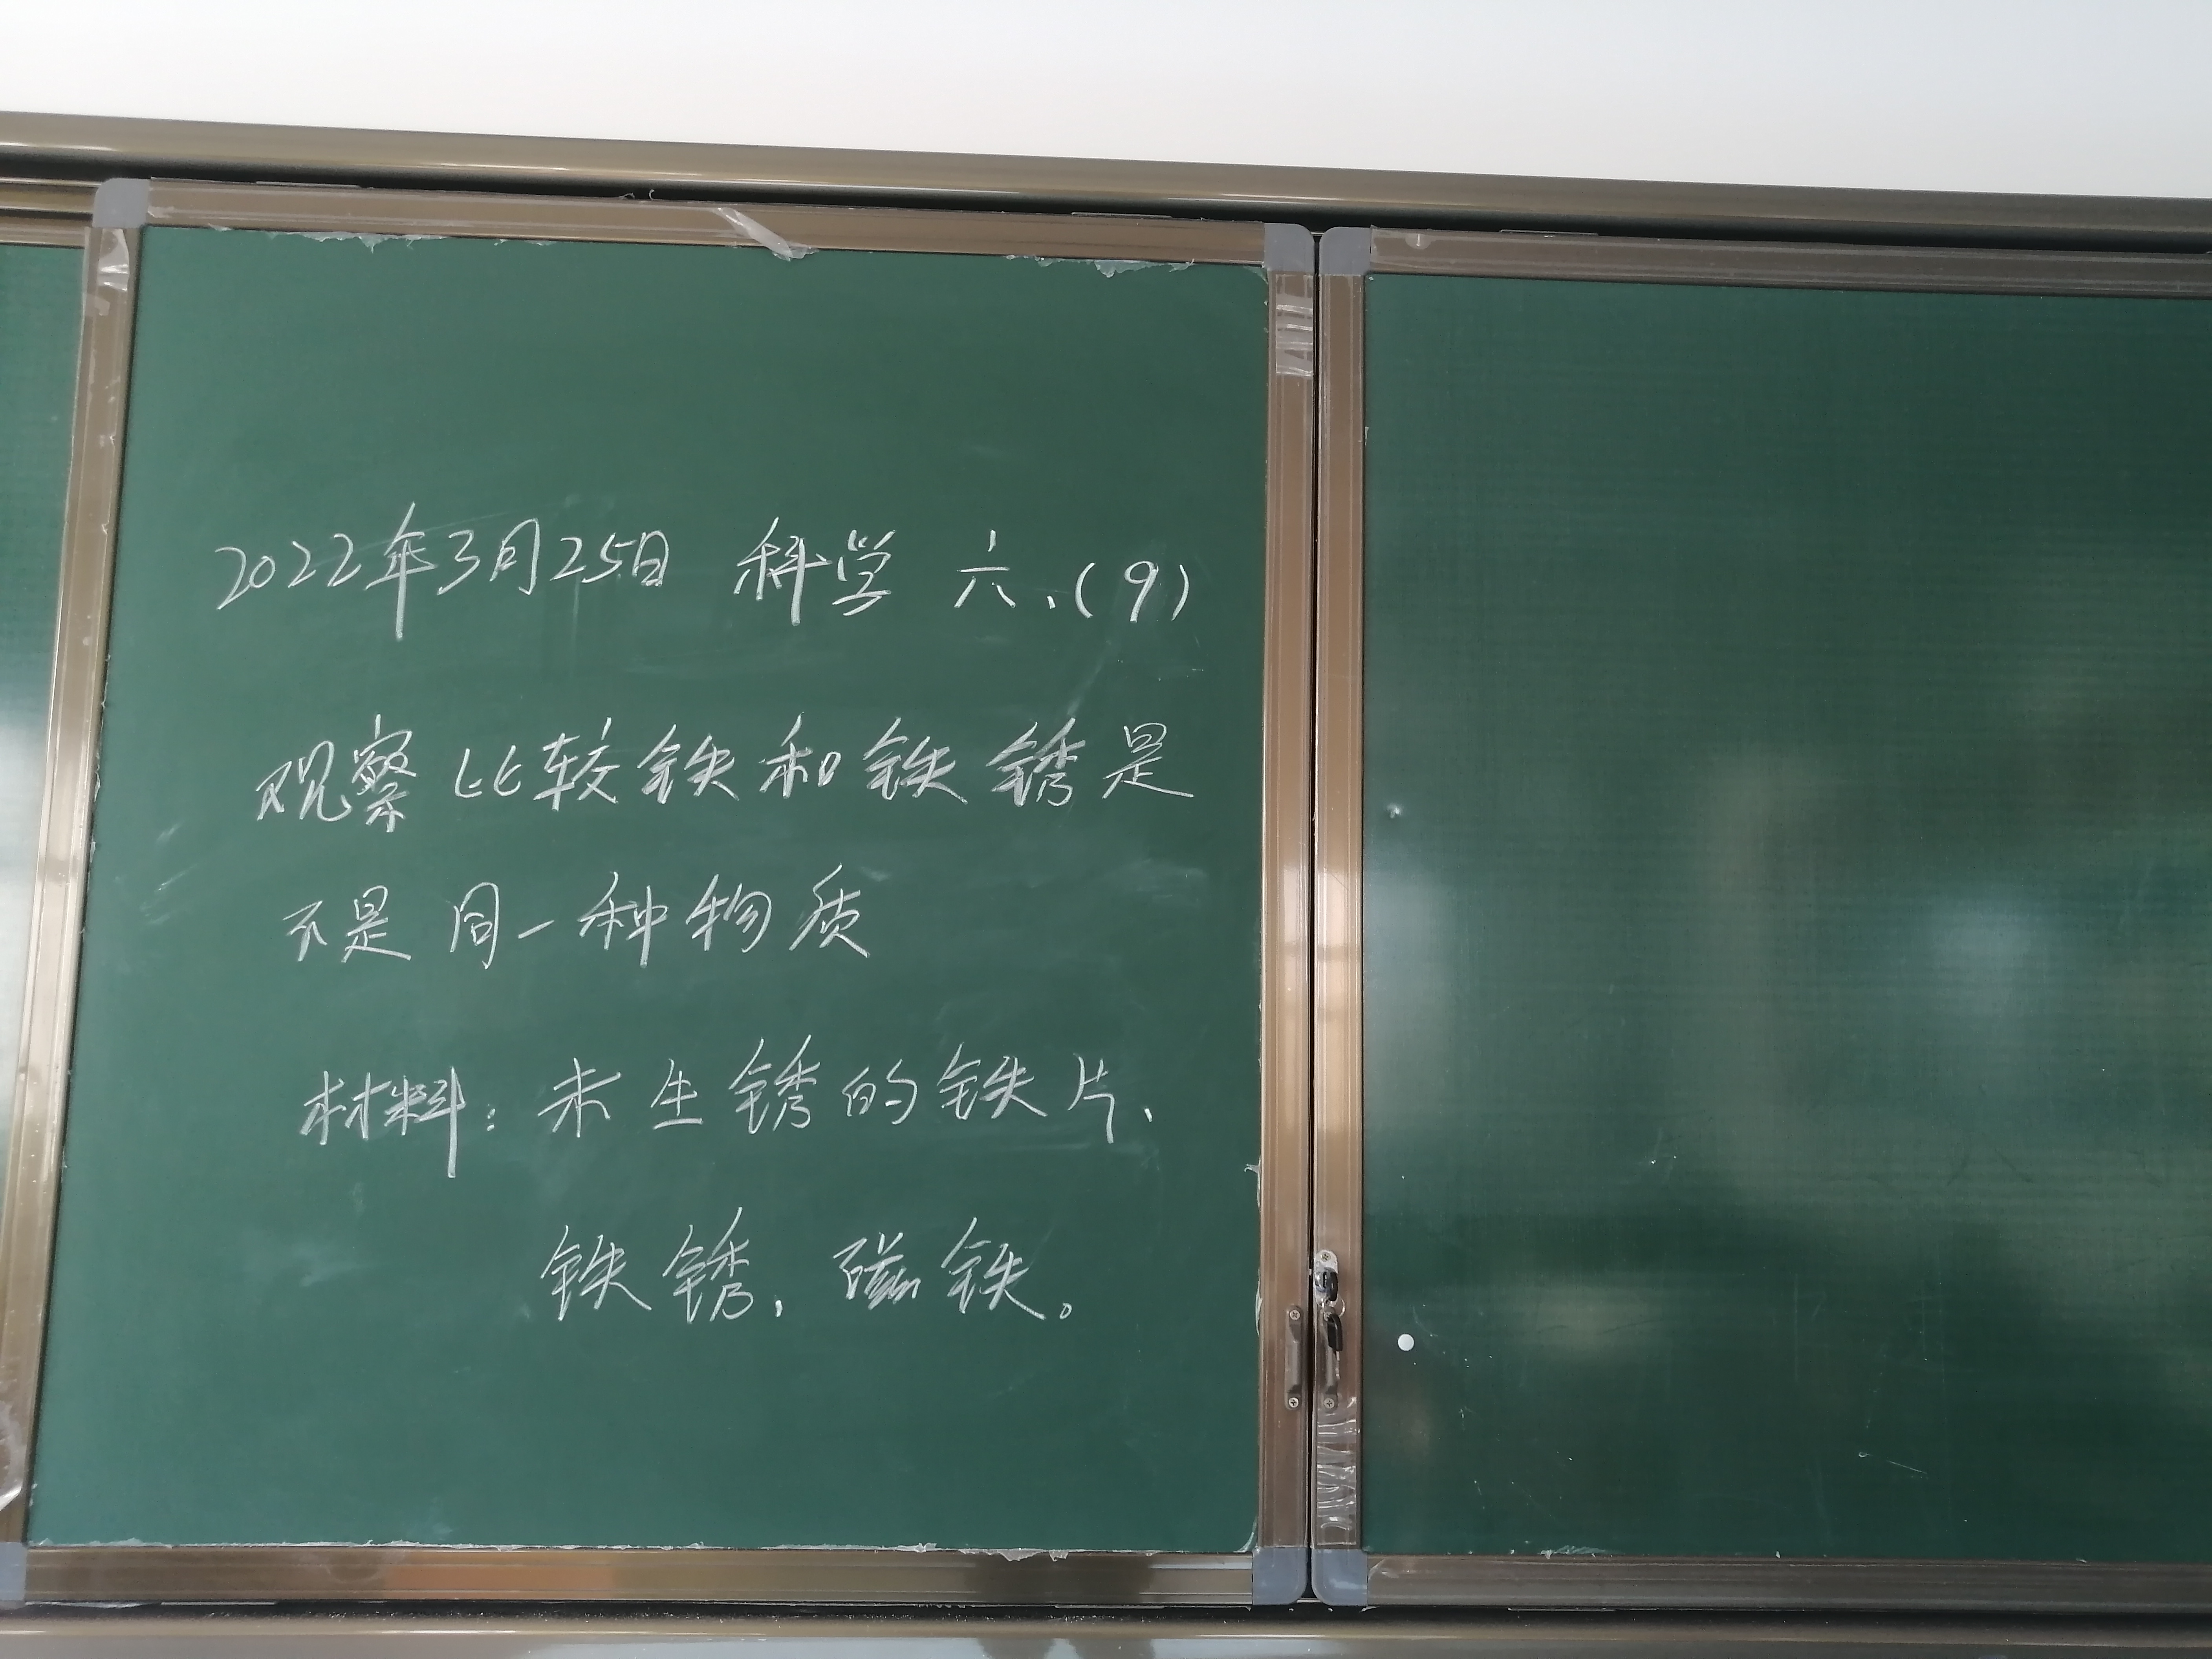 2022年3月25日 科学 六.(9)
观察比较铁和铁锈是
不是同一种物质
材料：未生锈的铁片、
铁锈、磁铁。